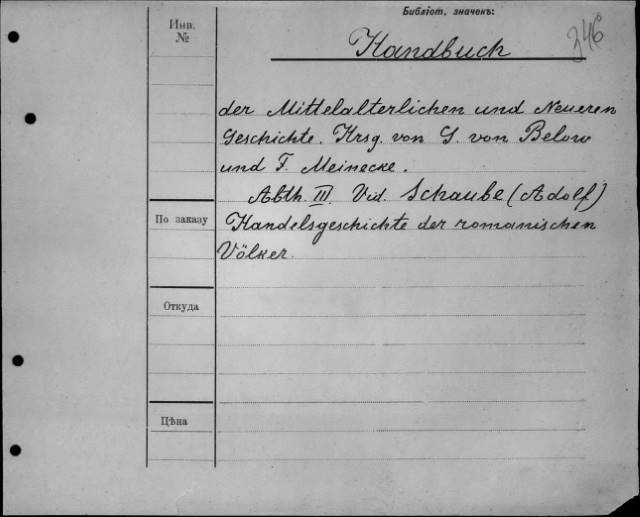 Библіот. значекъ:
Инв.
№
346
Handbuch
der Mittelalterlichen und Neueren
Geschichte. Hrsg. von G. von Below
und F. Meinecke.
Abth. III. Vid. Schaube (Adolf)
По заказу
Handelsgeschichte der romanischen
Völker.
Откуда
Цѣна